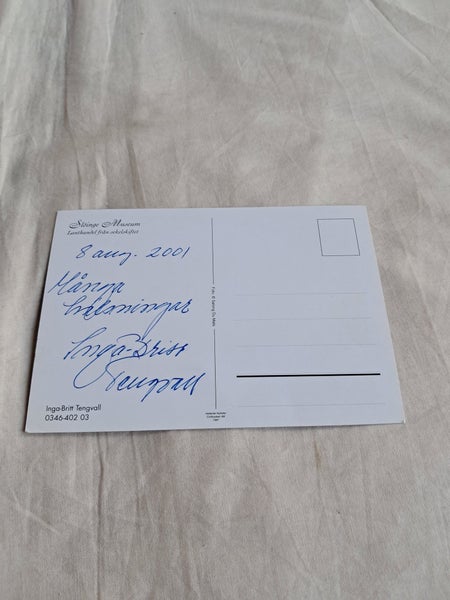 Slöinge Museum
Lanthandel från sekelskiftet
8 aug. 2001
Många
hälsningar
Inga-Britt
Tengvall
Inga-Britt Tengvall
0346-402 03